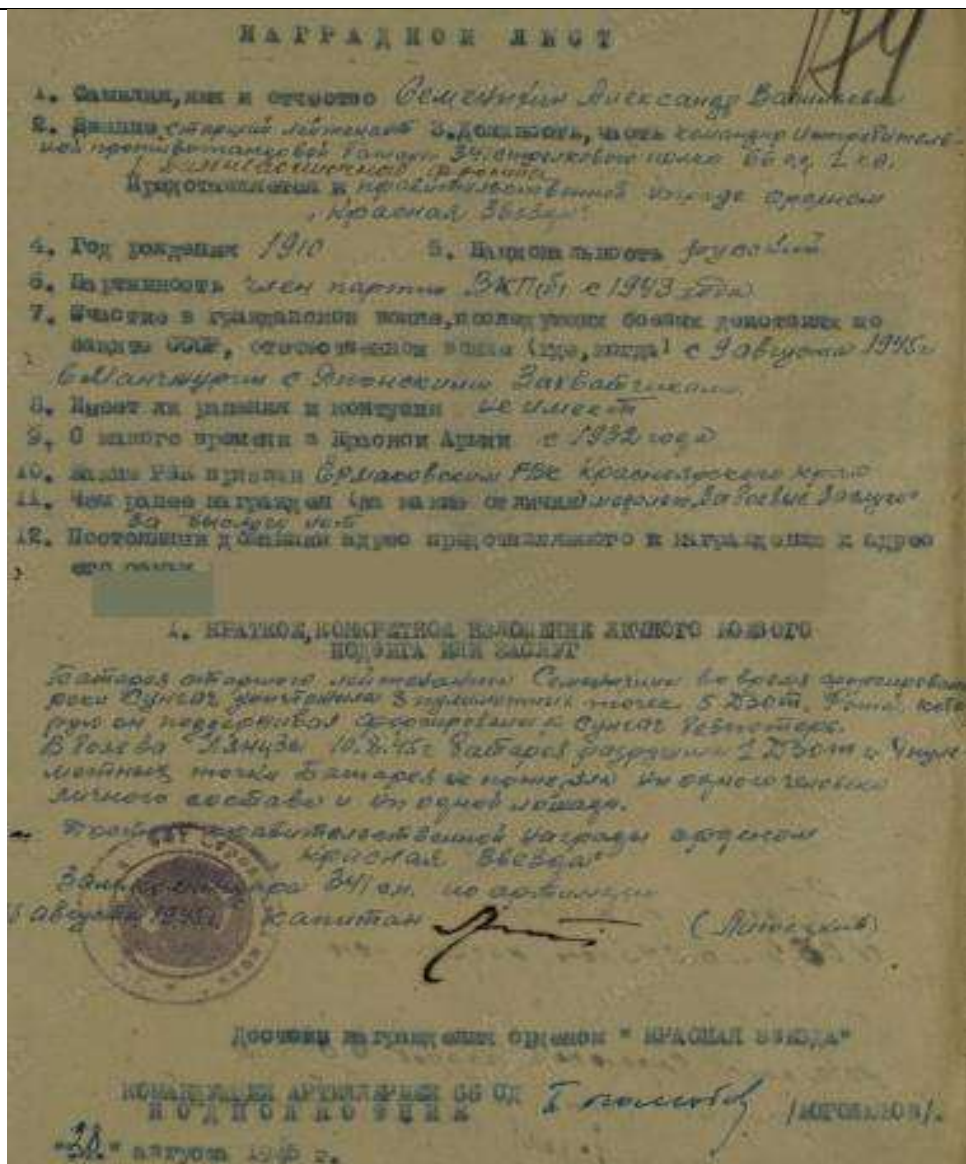 НАГРАДНОЙ ЛИСТ
1. Фамилия, имя и отчество Александр
2. Звание старший лейтенант 3. Должность, часть командир истребитель-
ной противотанковой 341 стрелкового полка 66 сд
Представляется к правительственной награде орденом
"Красная Звезда"
4. Год рождения 1910 5. Национальность русский
6. Партийность член партии ВКП(б) с 1943 года
7. Участие в гражданской войне, последующих боевых действиях по
защите СССР, отечественной войне (где, когда) с 9 августа 1945 г
в Манчжурии с Японскими Захватчиками
8. Имеет ли ранения и контузии не имеет
9. С какого времени в Красной Армии с 1932 года
10. Каким РВК призван Ермаковским РВК Красноярского края
11. Чем ранее награжден (за какие отличия) медалью "За боевые заслуги"
за выслугу лет
12. Постоянный домашний адрес представляемого к награждению и адрес
его семьи
I. КРАТКОЕ, КОНКРЕТНОЕ ИЗЛОЖЕНИЕ ЛИЧНОГО БОЕВОГО
ПОДВИГА ИЛИ ЗАСЛУГ
Батарея старшего лейтенанта во время форсирования
реки Сунгач уничтожила 3 пулеметных точек 5 Дзот. кото-
рую он поддерживал Сунгач
10.8.45г батарея разрушила 2 Дзот и 4 пуле-
метных точки Батарея не потеряла ни одного человека
личного состава и ни одной лошади.
правительственной награды орденом
"Красная Звезда"
341 сп. по артиллерии
августа 1945г. капитан
Достоин награждения орденом "КРАСНАЯ ЗВЕЗДА"
КОМАНДУЮЩИЙ АРТИЛЛЕРИЕЙ 66 СД
ПОДПОЛКОВНИК
"28" августа 1945 г.